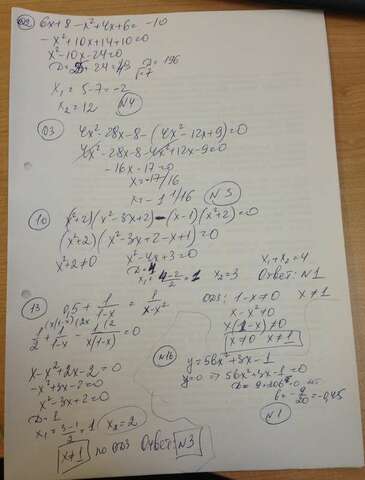 6x+8-x²+4x+6=-10
-x²+10x+14+10=0
x²-10x-24=0
x₁=5-7=-2
x₂=12
N4
03
4x²-28x-8-(4x²-12x+9)=0
4x²-28x-8-4x²+12x-9=0
-16x-17=0
x=-17/16
x=-1 1/16
N3
10
(x²+2)(x²-3x+2)-(x-1)(x²+2)=0
(x²+2)(x²-3x+2-x+1)=0
x²+2≠0 x²-4x+3=0
x₁=4-2/2=1 x₂=3 x₁+x₂=4
Ответ: N1
13
0,5+1/1-x=1/x-x²
ОДЗ: 1-x≠0 x≠1
x-x²≠0
x(1-x)≠0
x≠0 x≠1
x-x²+2x-2=0
-x²+3x-2=0
x²-3x+2=0
D=1
x₁=3-1/2=1 x₂=2
x≠1 по ОДЗ Ответ: N3
N16
y=56x²+9x-1
y=0 => 56x²+9x-1=0
N1